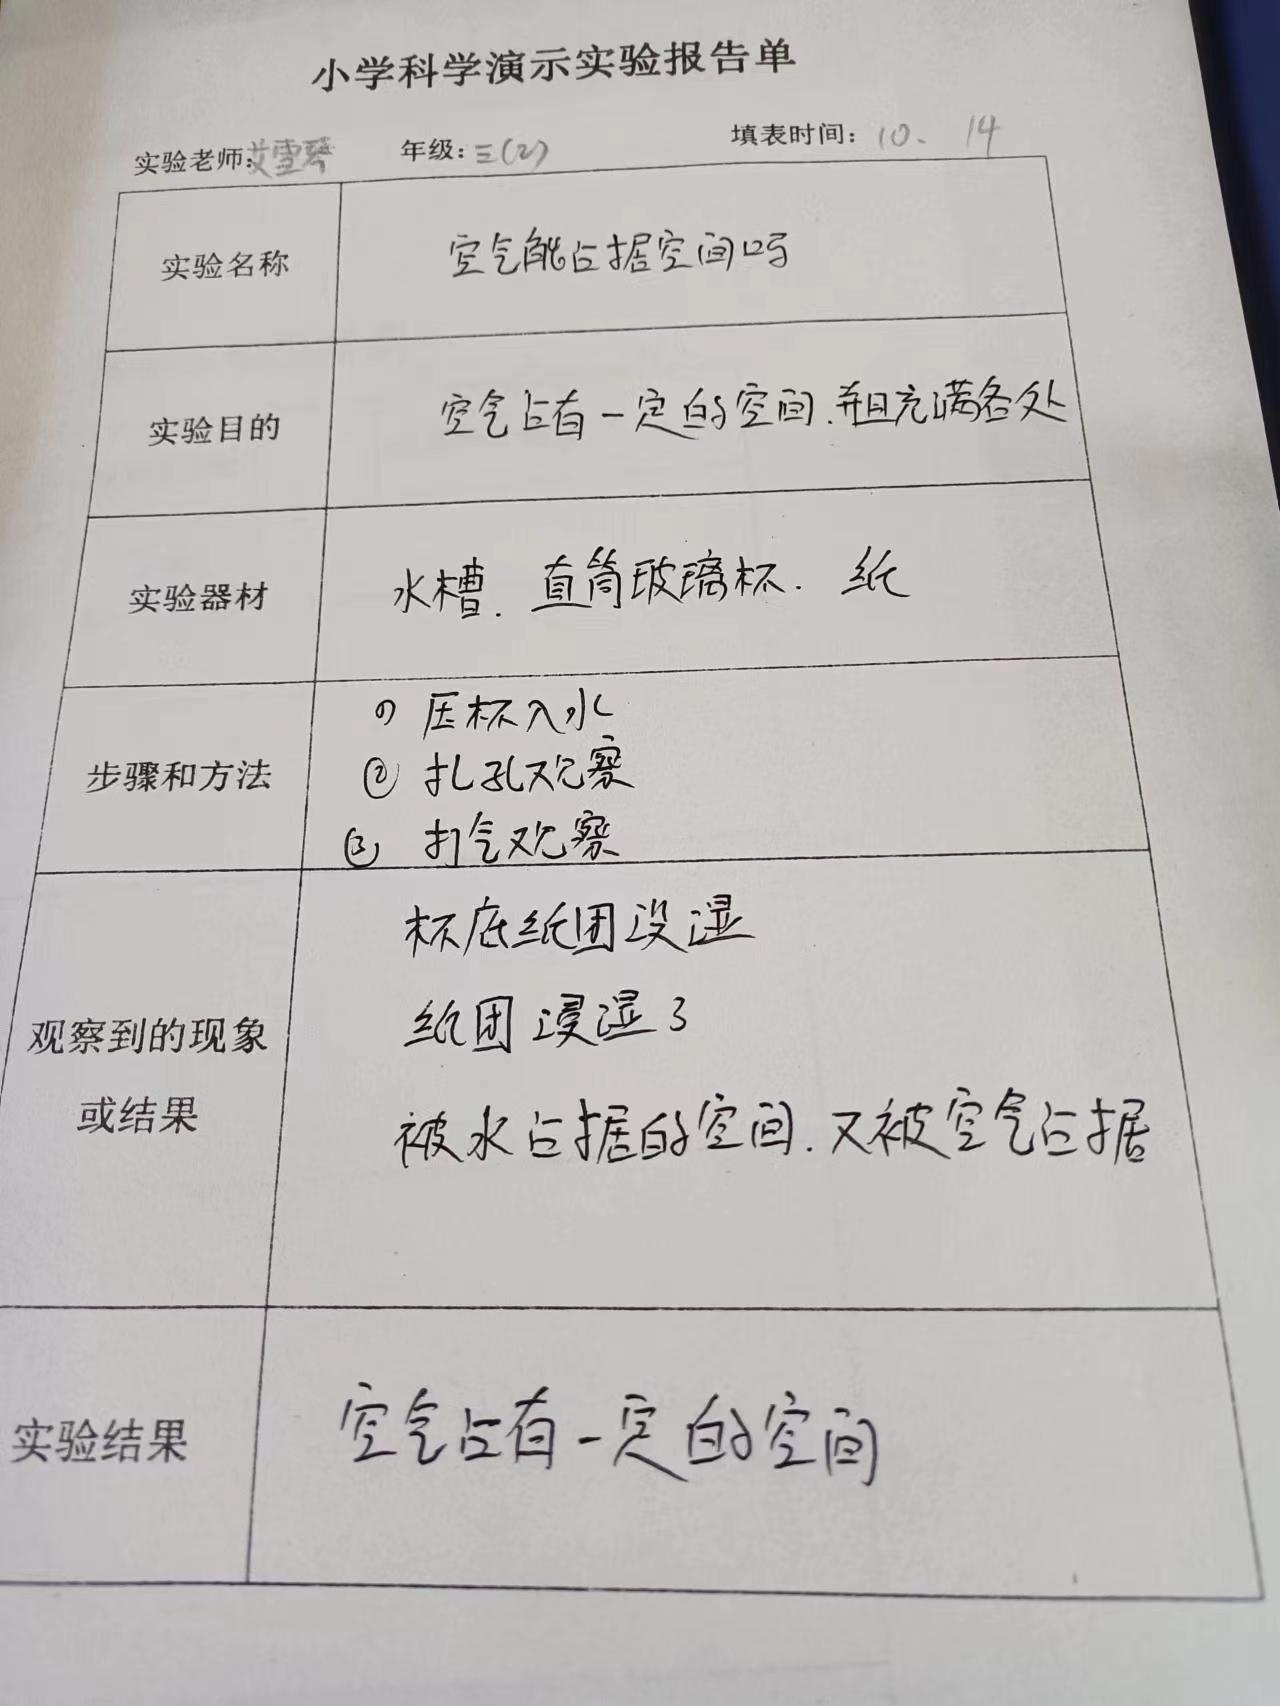 小学科学演示实验报告单
实验老师:艾雪琴 年级:三(2) 填表时间: 10. 14
实验名称 空气能占据空间吗
实验目的 空气占有一定的空间.并且充满各处
实验器材 水槽. 直筒玻璃杯. 纸
步骤和方法
① 压杯入水
② 扎孔观察
③ 打气观察
观察到的现象
或结果
杯底纸团没湿
纸团浸湿了
被水占据的空间.又被空气占据
实验结果 空气占有一定的空间